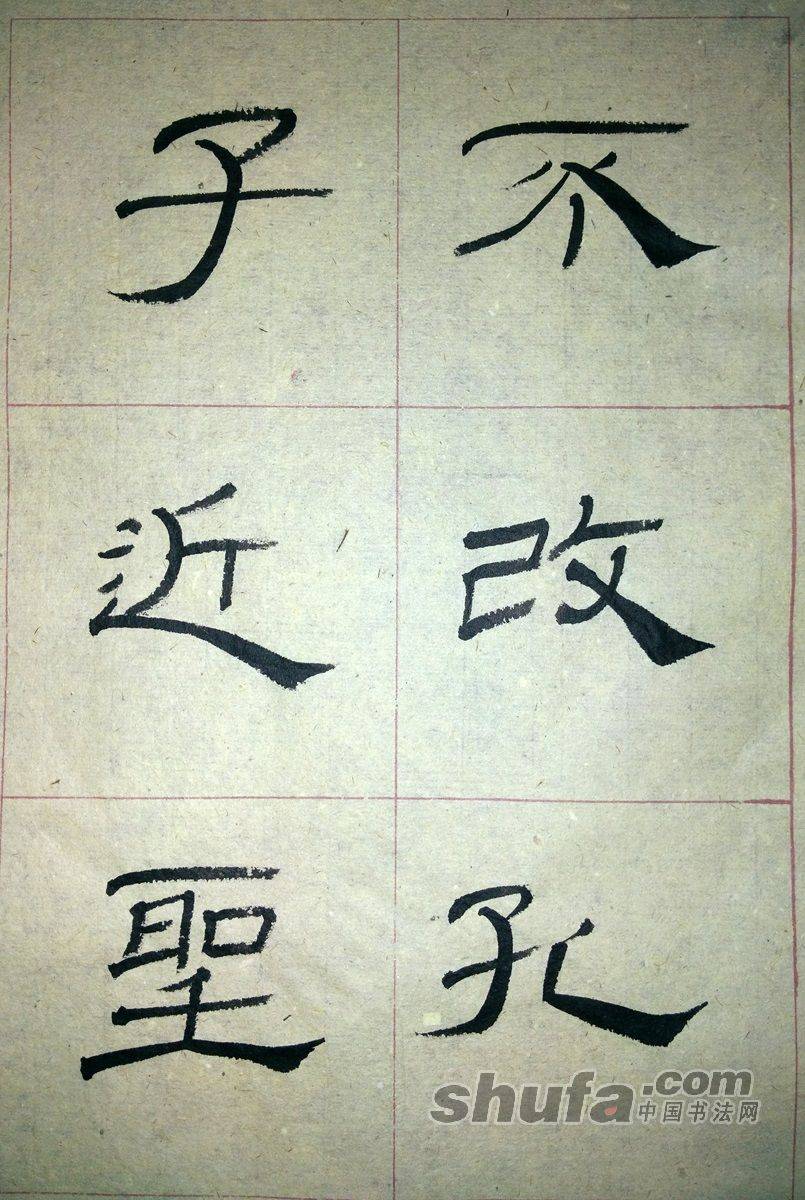 不改孔
子近聖
shufa.com
中国书法网